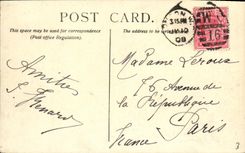 POST CARD.
This space may be used for correspondence
(Post office Regulation).
The address to be written
Amitiés
Madame Leroux
76 Avenue de
la République
Paris
France
3.15 PM
08
16
3